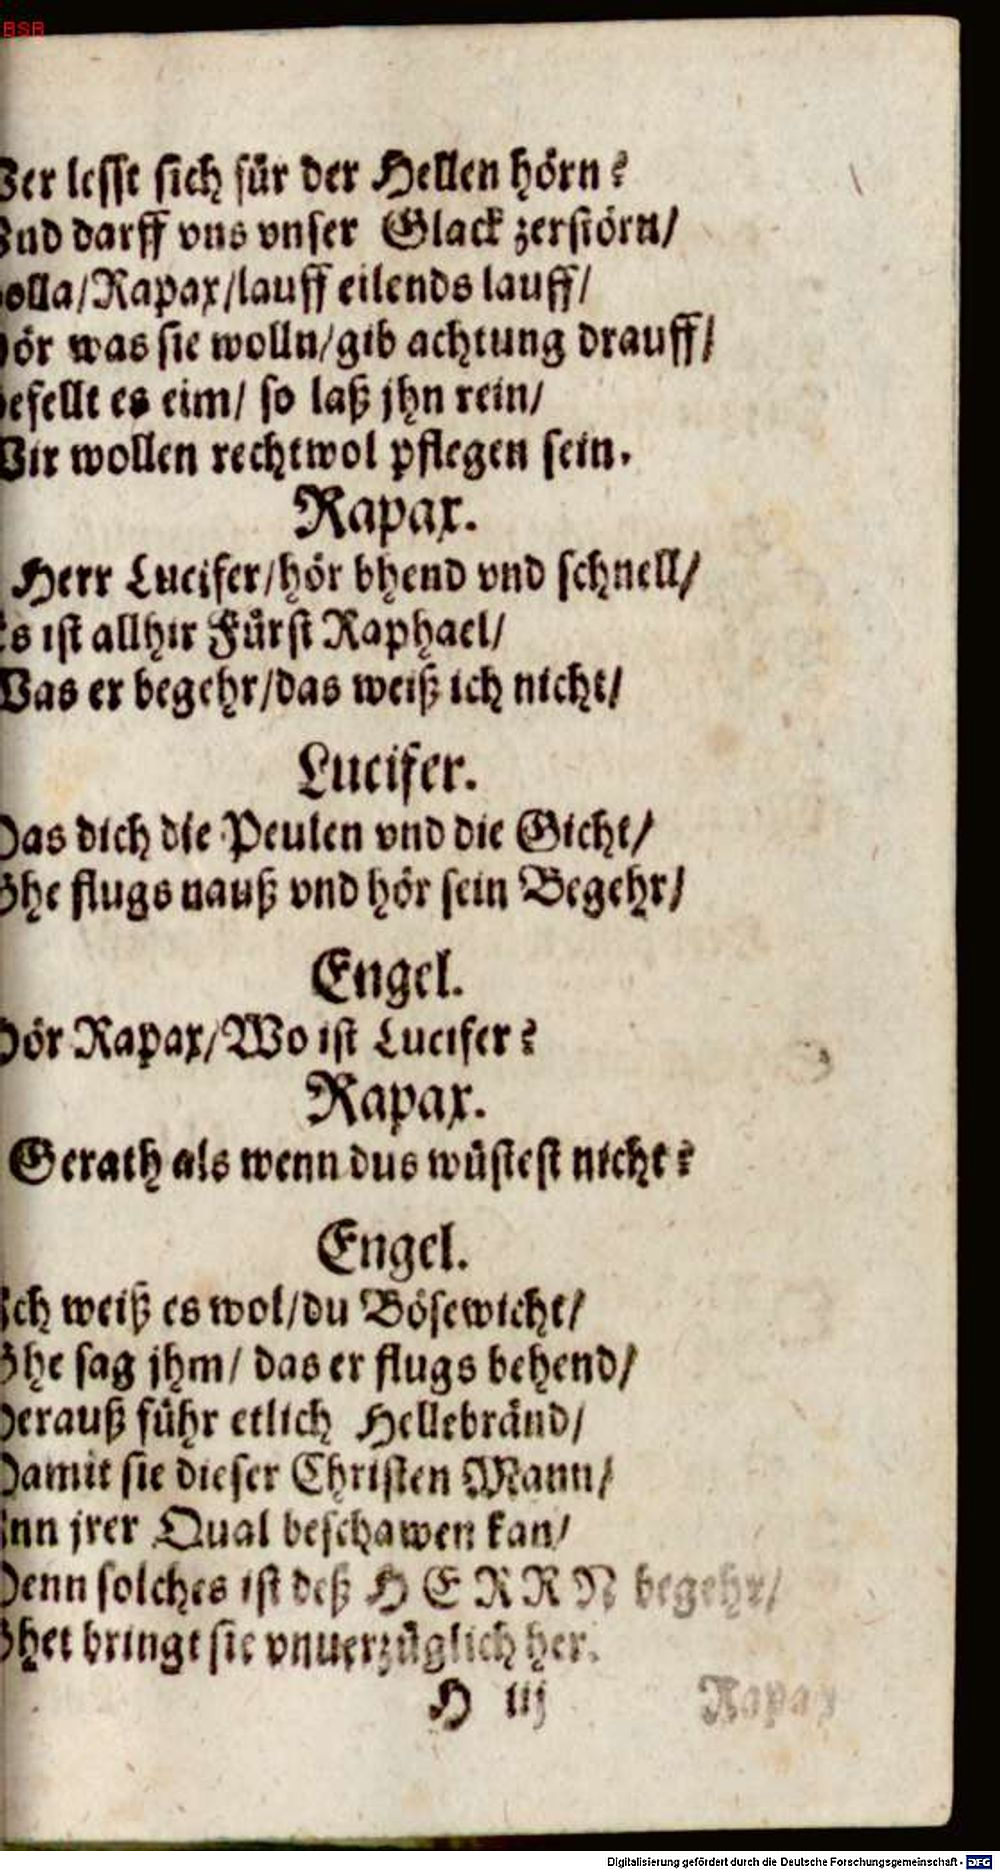 BSB
Wer lesst sich für der Hellen hörn?
Vnd darff vns vnser Glack zerstörn/
Holla/Rapax/lauff eilends lauff/
Hör was sie wolln/gib achtung drauff/
Gefellt es eim/ so laß jhn rein/
Wir wollen recht wol pflegen sein.
Rapax.
Herr Lucifer/hör bhend vnd schnell/
Es ist allhir Fürst Raphael/
Was er begehr/das weiß ich nicht/
Lucifer.
Das dich die Peulen vnd die Gicht/
Ghe flugs nauß vnd hör sein Begehr/
Engel.
Hör Rapax/Wo ist Lucifer?
Rapax.
Gerath als wenn dus wüstest nicht?
Engel.
Ich weiß es wol/du Bösewicht/
Ghe sag jhm/ das er flugs behend/
Herauß führ etlich Hellebränd/
Damit sie dieser Christen Mann/
Inn jrer Qual beschawen kan/
Denn solches ist deß HERRN begehr/
Ghet bringt sie vnuerzüglich her.
H iij
Rapax
Digitalisierung gefördert durch die Deutsche Forschungsgemeinschaft - DFG